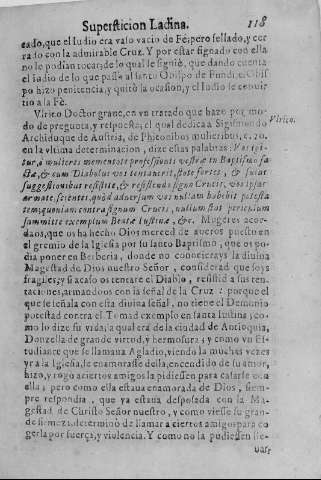 Supersticion Ladina. 118
cado, que el Iudio era vaso vacio de Fè; pero sellado, y cer
rado con la admirable Cruz. Y por estar signado con ella
no le podian tocar; de lo qual le siguiò, que dando cuenta
el Iudio de lo que passa al santo Obispo de Fundi, el Obis
po hizo penitencia, y quitò la ocasion, y el Iudio se convir
tio a la Fè.
Vlrico Doctor grave, en vn tratado que hazo por mo-
do de pregunta, y respuesta, el qual dedica a Sigismundo
Vlrico.
Archiduque de Austria, de Phitonibus mulieribus, c. 20.
en la vltima determinacion, dize estas palabras:
tur, ò mulieres mementote professionis vestræ in Baptismo fa
ctæ, & cum Diabolus vos tentaverit, stote fortes, & suis
suggestionibus resistite, & resistendo signo Crucis, vos ipsas
armate, scientes, quòd adversum vos nullam habebit potesta
tem, quoniam contra signum Crucis, nullum stat periculum
summite exemplum Beatæ Iustinæ, &c. Mugeres acor-
daos, que os ha hecho Dios merced de averos puesto en
el gremio de la Iglesia por su santo Baptismo, que os po-
dia poner en Berberia, donde no conocierays la divina
Magestad de Dios nuestro Señor, considerad que soys
fragiles; y si acaso os tentare el Diablo, resistid a sus ten-
taciones, armandoos con la señal de la Cruz: porque el
que se señala con esta divina señal, no tiene el Demonio
potestad contra el. Tomad exemplo en santa Iustina; co-
mo lo dize su vida, la qual era de la ciudad de Antioquia,
Donzella de grande virtud, y hermosura; y como vn Es-
tudiante que se llamava Agladio, viendo la muchas vezes
yr a la Iglesia, se enamorasse della, encendido de su amor,
hizo, y rogò a ciertos amigos la pidiessen para casarse con
ella; pero como ella estava enamorada de Dios, siem-
pre respondia, que ya estava desposada con la Ma-
gestad de Christo Señor nuestro, y como viesse su gran-
de firmeza, determinò de llamar a ciertos amigos para co
gerla por fuerça, y violencia. Y como no la pudiessen lle-
var,